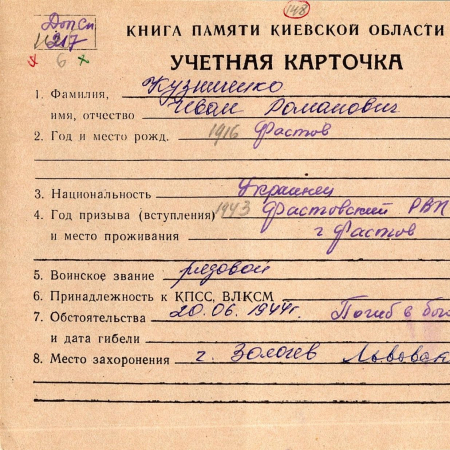 148
Доп.сп.
217
6
КНИГА ПАМЯТИ КИЕВСКОЙ ОБЛАСТИ
УЧЕТНАЯ КАРТОЧКА
1. Фамилия, Кузьменко
имя, отчество Иван Романович
2. Год и место рожд. 1916 Фастов
3. Национальность Украинец
4. Год призыва (вступления) 1943 Фастовский РВК
и место проживания г Фастов
5. Воинское звание рядовой
6. Принадлежность к КПСС, ВЛКСМ —
7. Обстоятельства 20.06.1944г. Погиб в бою
и дата гибели
8. Место захоронения г. Золочев Львовск